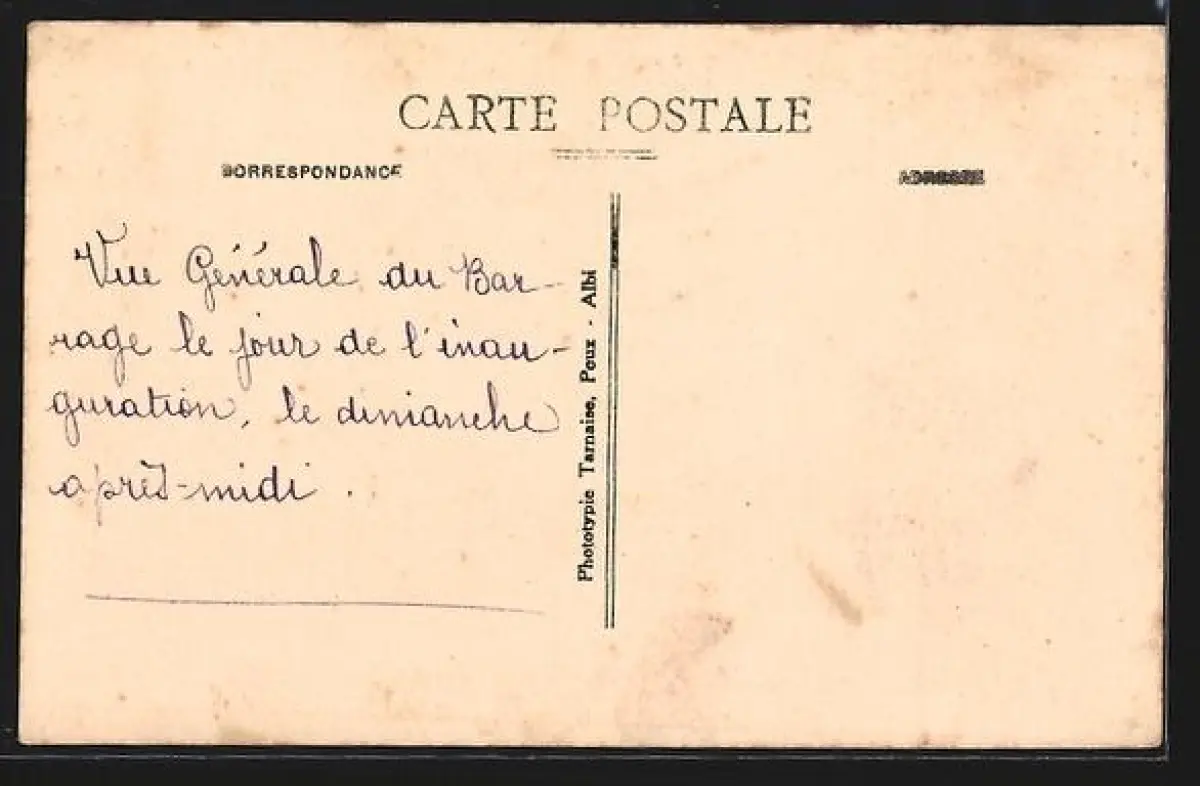 CARTE POSTALE
CORRESPONDANCE
ADRESSE
Vue Générale du Bar-
rage le jour de l'inau-
guration, le dimanche
après-midi.
Phototypie Tarnaise, Poux - Albi